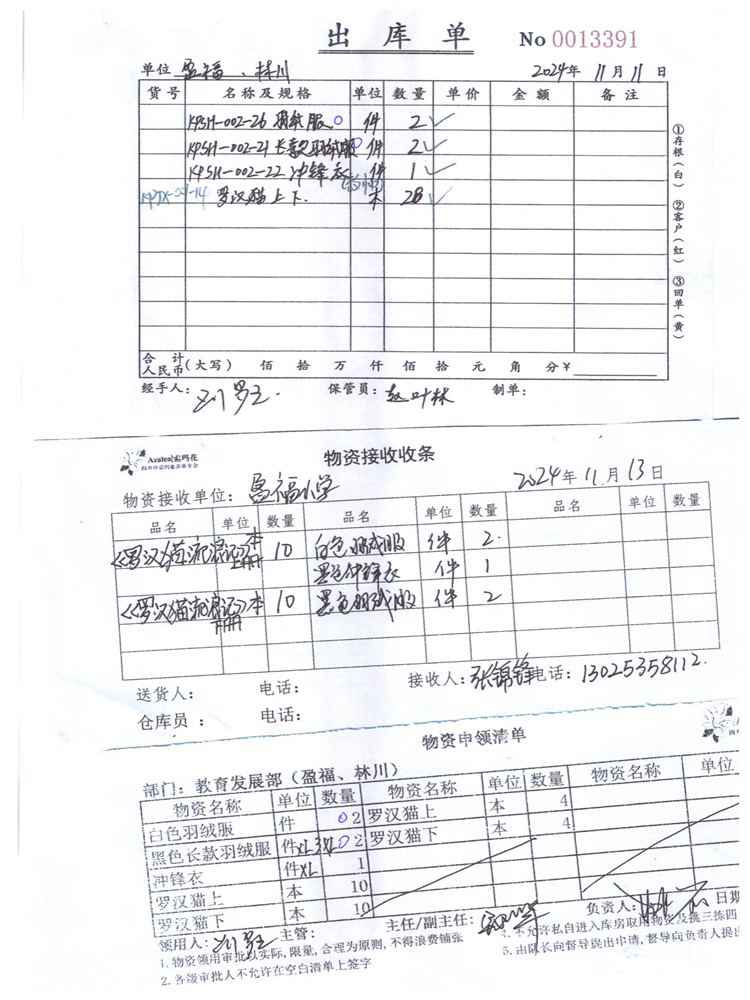 出库单 No 0013391
单位 盈福、林川 2024年11月11日
货号 名称及规格 单位 数量 单价 金额 备注
KPSH-002-26 羽绒服 件 2
KPSH-002-21 长款羽绒服 件 2
KPSH-002-22 冲锋衣 件 1
罗汉猫上下 本 28
①存根(白)
②客户(红)
③回单(黄)
合计人民币(大写) 佰 拾 万 仟 佰 拾 元 角 分¥
经手人: 保管员: 赵叶林 制单:
Azalea索玛花
物资接收收条
物资接收单位: 盈福小学 2024年11月13日
品名 单位 数量 品名 单位 数量 品名 单位 数量
《罗汉猫流浪记》上册 本 10 白色羽绒服 件 2
黑色冲锋衣 件 1
《罗汉猫流浪记》下册 本 10 黑色羽绒服 件 2
送货人: 电话: 接收人: 张锦锋 电话: 13025358112.
仓库员: 电话:
物资申领清单
部门: 教育发展部(盈福、林川)
物资名称 单位 数量 物资名称 单位 数量 物资名称 单位
白色羽绒服 件 2 罗汉猫上 本 4
黑色长款羽绒服 件 XL 3XL 2 罗汉猫下 本 4
冲锋衣 件 XL 1
罗汉猫上 本 10
罗汉猫下 本 10
领用人: 主管: 主任/副主任: 负责人: 日期
1.物资领用审批以实际,限量,合理为原则,不得浪费铺张
2.各级审批人不允许在空白清单上签字
不允许私自进入库房取用物资及挑三拣四
5.由队长向督导提出申请,督导向负责人提出